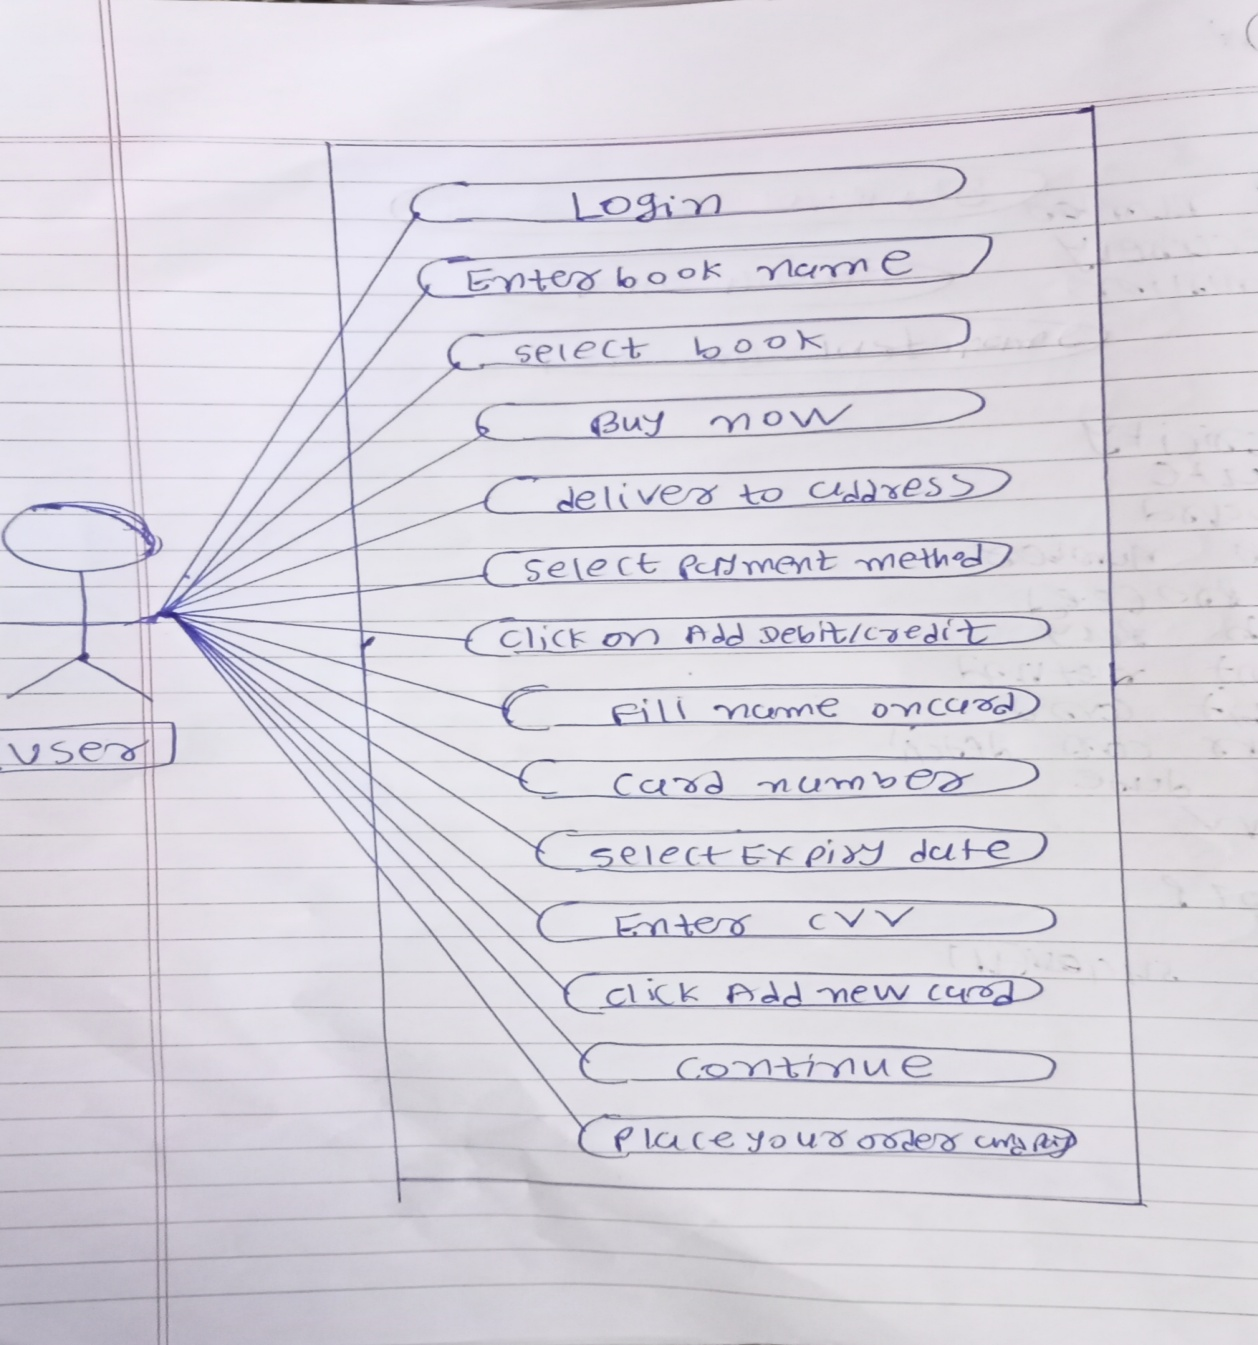 Login
Enter book name
select book
Buy now
deliver to address
select payment method
click on Add Debit/credit
Fill name oncard
user
card number
select Expiry date
Enter CVV
click Add new card
continue
Place your order and pay